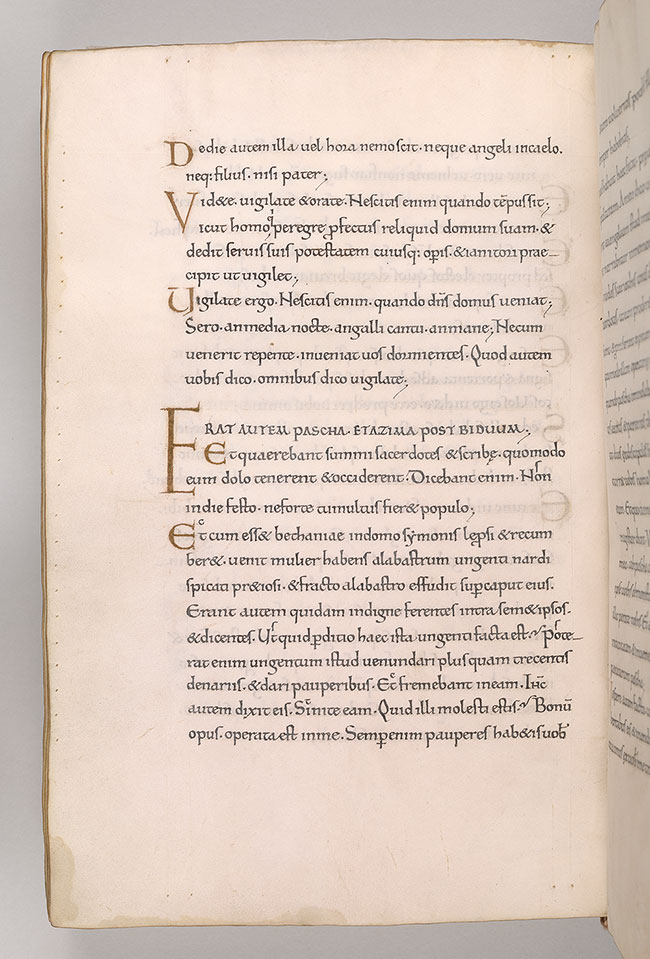 Dedie autem illa uel hora nemoscit · neque angeli incaelo.
neq; filius · nisi pater;
Vid&e · uigilate &orate · Nescitis enim quando tēpussit;
Vicut homo q̇ peregre ꝓfectus reliquid domum suam · &
dedit seruissuis potestatem cuiusq; opis · &ianitori prae-
cipit ut uigilet;
Uigilate ergo · Nescitis enim · quando dn̄s domus ueniat;
Sero · anmedia nocte · angalli cantu · anmane; Necum
uenerit repente · inueniat uos dormientes · Quod autem
uobis dico · omnibus dico uigilate;
ERAT AUTEM PASCHA · ETAZIMA POST BIDUUM;
Etquaerebant summi sacerdotes &scribę · quomodo
eum dolo tenerent &occiderent · Dicebant enim · Non
indie festo · neforte tumultus fier& populo;
Et cum ess& bethaniae indomo symonis lepsi &recum
ber& · uenit mulier habens alabastrum ungenti nardi
spicati p̄&iosi · &fracto alabastro effudit sup̲caput eius.
Erant autem quidam indigne ferentes intra sem&ipsos.
&dicentes · Ut quid ꝑditio haec ista ungenti facta est? Pote-
rat enim ungentum istud uenundari plus quam trecentis
denariis · &dari pauperibus · Et fremebant ineam · Ih̄c
autem dixit eis · Sinite eam · Quid illi molesti estis? Bonū
opus · operata est inme · Semꝑenim pauperes hab&isuob